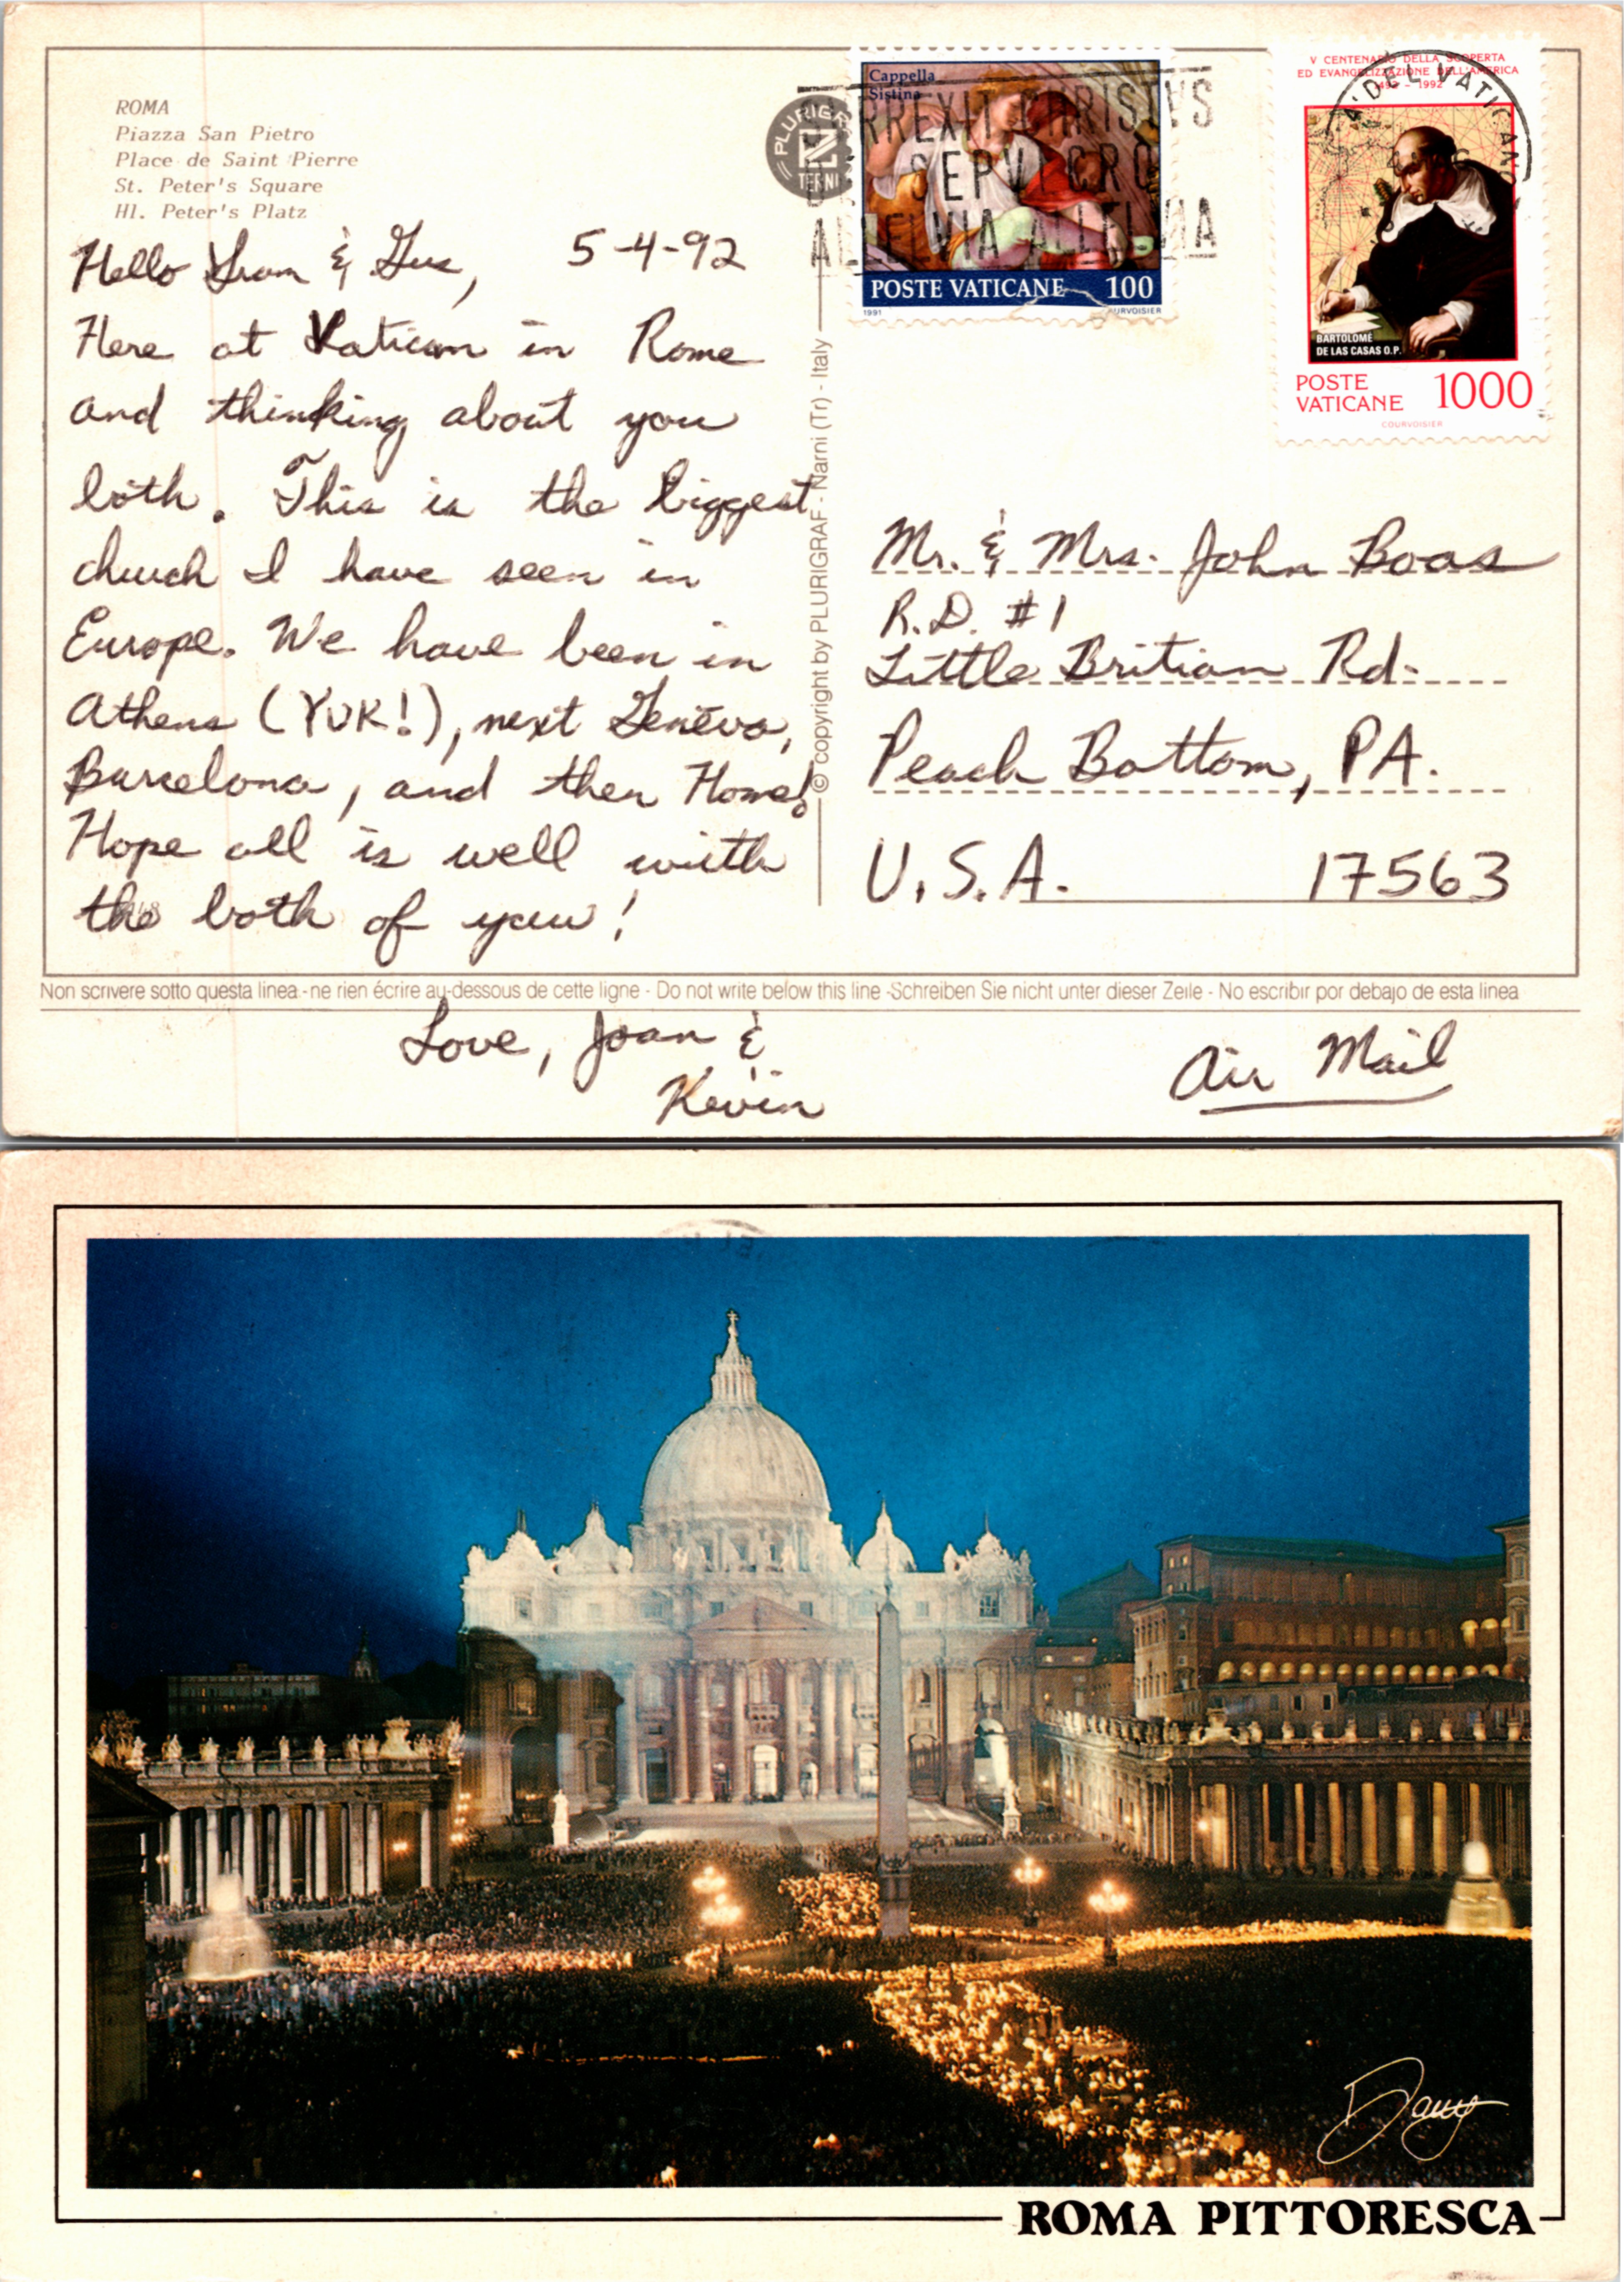 ROMA
Piazza San Pietro
Place de Saint Pierre
St. Peter's Square
Hl. Peter's Platz
Hello & Gus, 5-4-92
Here at Vatican in Rome
and thinking about you
both. This is the biggest
church I have seen in
Europe. We have been in
Athens (YUK!), next Geneva,
Barcelona, and then Home!
Hope all is well with
the both of you!
Love, Joan &
Kevin
Air Mail
Non scrivere sotto questa linea - ne rien écrire au-dessous de cette ligne - Do not write below this line - Schreiben Sie nicht unter dieser Zeile - No escribir por debajo de esta linea
© copyright by PLURIGRAF - Narni (Tr) - Italy
PLURIGRAF
TERNI
Cappella
Sistina
POSTE VATICANE 100
1991 COURVOISIER
SVRREXIT CHRISTVS
SEPVLCRO
ALLELVIA ALLELVIA
V CENTENARIO DELLA SCOPERTA
ED EVANGELIZZAZIONE DELL'AMERICA
1492 - 1992
DEL VATICANO
BARTOLOMÉ
DE LAS CASAS O.P.
POSTE
VATICANE 1000
COURVOISIER
Mr. & Mrs. John Boas
R.D. #1
Little Britian Rd.
Peach Bottom, PA.
U.S.A. 17563
ROMA PITTORESCA